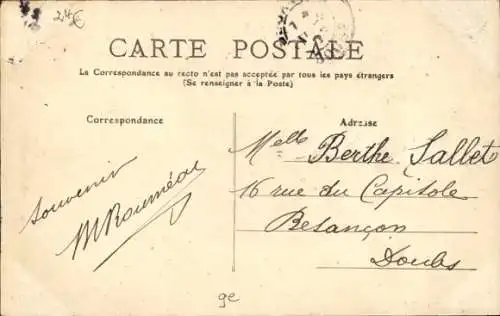 24€
CARTE POSTALE
La Correspondance au recto n'est pas acceptée par tous les pays étrangers
(Se renseigner à la Poste)
Correspondance
Adresse
Souvenir
Melle Berthe Sallet
16 rue du Capitole
Besançon
Doubs
ge